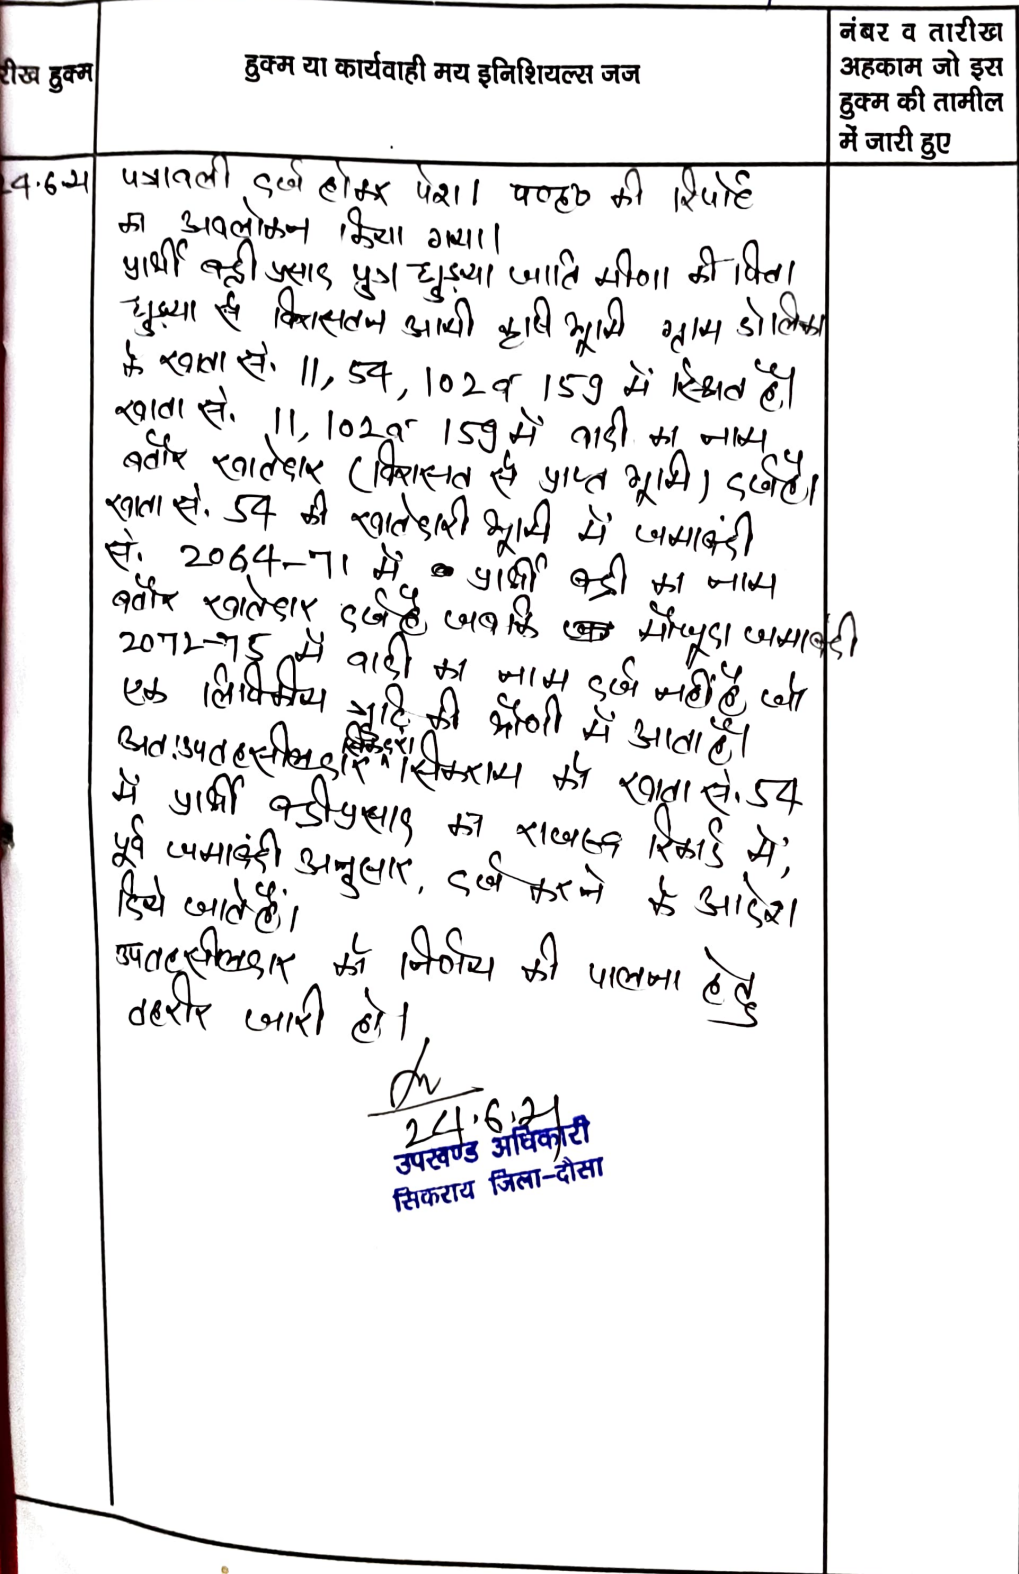 रीख हुक्म
हुक्म या कार्यवाही मय इनिशियल्स जज
नंबर व तारीख
अहकाम जो इस
हुक्म की तामील
में जारी हुए
24.6.21
पत्रावली दर्ज होकर पेश। की रिपोर्ट
का अवलोकन किया गया।
प्रार्थी बद्री प्रसाद पुत्र घुड्या जाति मीणा की पिता
घुड्या से विरासतन आयी कृषि भूमि ग्राम डोलिका
के खाता सं. 11, 54, 102 व 159 में स्थित है।
खाता सं. 11, 102 व 159 में वादी का नाम
बतौर खातेदार (विरासत से प्राप्त भूमि) दर्ज है।
खाता सं. 54 की खातेदारी भूमि में जमाबंदी
सं. 2064-71 में प्रार्थी बद्री का नाम
बतौर खातेदार दर्ज है, जबकि मौजूदा जमाबंदी
2072-75 में वादी का नाम दर्ज नहीं है, जो
एक लिपिकीय त्रुटि की श्रेणी में आता है।
अतः उपतहसीलदार सिकंदरा सिकराय को खाता सं. 54
में प्रार्थी बद्रीप्रसाद को राजस्व रिकार्ड में,
पूर्व जमाबंदी अनुसार, दर्ज करने के आदेश
दिये जाते हैं।
उपतहसीलदार को निर्णय की पालना हेतु
तहरीर जारी हो।
24.6.21
उपखण्ड अधिकारी
सिकराय जिला-दौसा